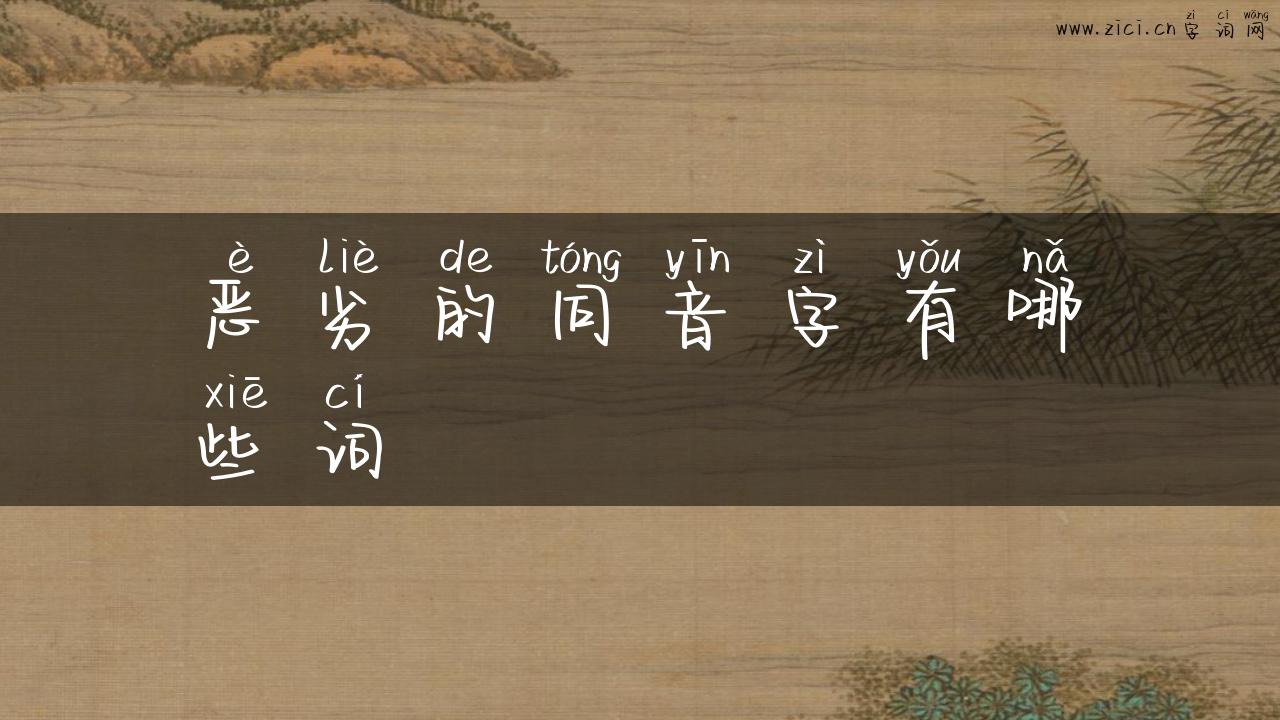 zì cí wǎng
www.zici.cn 字词网
è liè de tóng yīn zì yǒu nǎ
恶劣的同音字有哪
xiē cí
些词